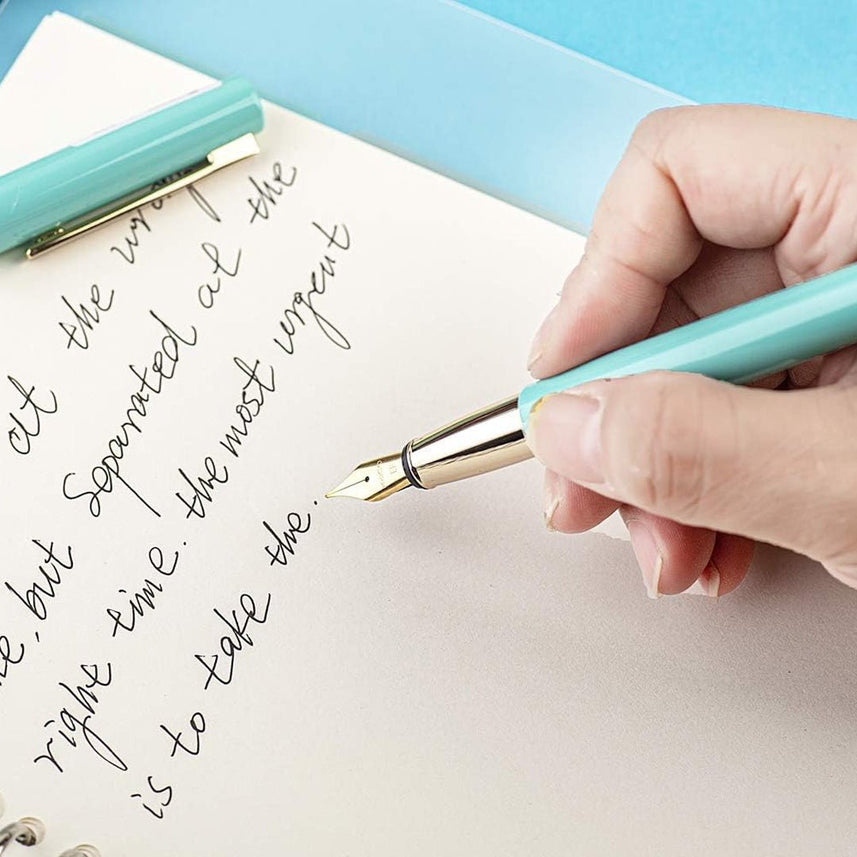 at the wrong
but Separated at the
right time. the most urgent
is to take the.